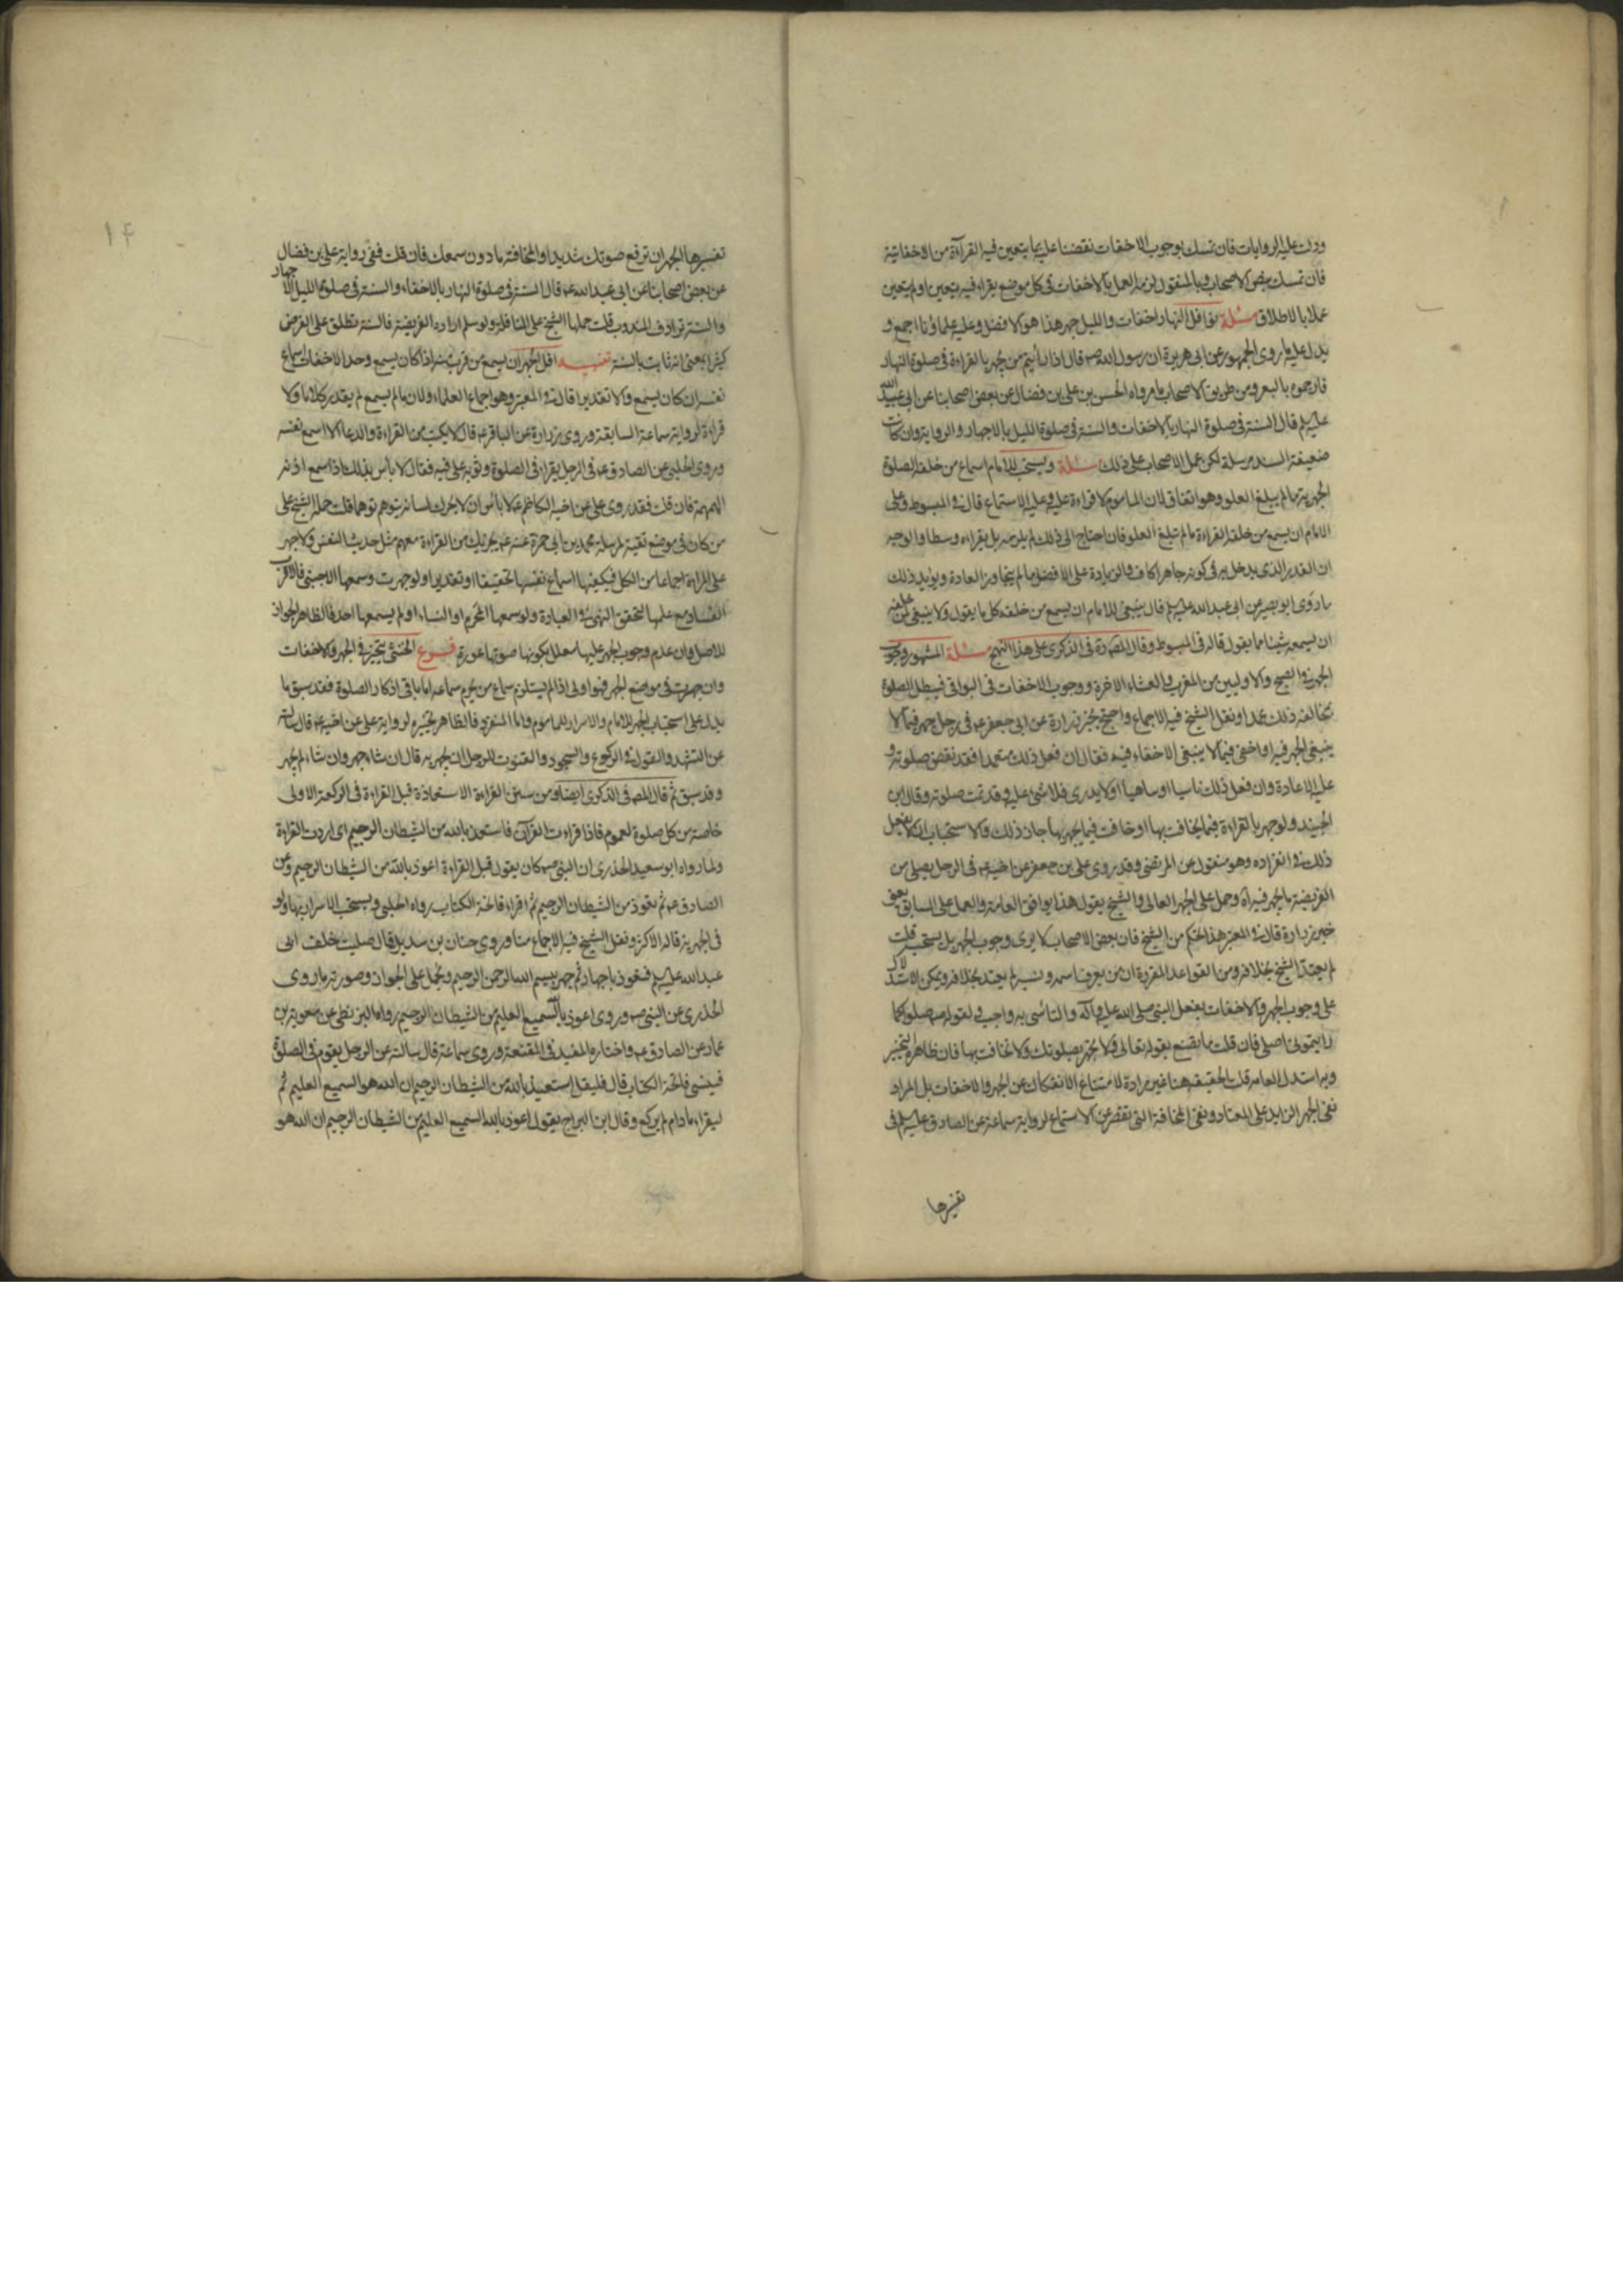 ودلت عليه الروايات فان تمسك بوجوب الاخفات نقضنا عليه بما يتعين فيه القراءة من الاخفاتية
فان تمسك ببعض الاصحاب وبالمنقول لزمه العمل بالاخفات في كل موضع يقراء فيه يتعين او لم يتعين
عملا بالاطلاق مسئلة نوافل النهار اخفات والليل جهر هذا هو الافضل وعليه علماؤنا اجمع و
يدل عليه ما روى الجمهور عن ابى هريرة ان رسول الله ص قال اذا رأيتم من يجهر بالقراءة فى صلوة النهار
فارجموه بالبعر ومن طريق الاصحاب ما رواه الحسن بن على بن فضال عن بعض اصحابنا عن ابى عبد الله
عليه لم قال السنة فى صلوة النهار بالاخفات والسنة فى صلوة الليل بالاجهار والرواية وان كانت
ضعيفة السند مرسلة لكن عمل الاصحاب على ذلك مسئلة ويستحب للامام اسماع من خلفه الصلوة
الجهرية ما لم يبلغ العلو وهو اتفاق لان الماموم لا قراءة عليه وعليه الاستماع قال فى المبسوط وعلى
الامام ان يسمع من خلفه القراءة ما لم تبلغ العلو فان احتاج الى ذلك لم يلزمه بل يقراء وسطا والوجه
ان القدر الذى يدخل به فى كونه جاهرا كاف والزيادة على الافضل ما لم يتجاوز العادة ويؤيد ذلك
ما روى ابو بصير عن ابى عبد الله عليه لم قال ينبغى للامام ان يسمع من خلفه كل ما يقول ولا ينبغى لمن خلفه
ان يسمعه شيئا مما يقول قاله فى المبسوط وقال المص ره فى الذكرى على هذا النهج مسئلة المشهور وجوب
الجهر فى الصبح والاوليين من المغرب والعشاء الاخرة ووجوب الاخفات فى البواقى فيبطل الصلوة
بمخالفة ذلك عمدا ونقل الشيخ فيه الاجماع واحتج بخبر زرارة عن ابى جعفر ع فى رجل جهر فيما لا
ينبغى الجهر فيه او اخفى فيما لا ينبغى الاخفاء فيه فقال ان فعل ذلك متعمدا فقد نقض صلوته و
عليه الاعادة وان فعل ذلك ناسيا او ساهيا او لا يدرى فلا شئ عليه وقد تمت صلوته وقال ابن
الجنيد ولو جهر بالقراءة فيما يخافت بها او خافت فيما يجهر بها جاز ذلك والاستحباب ان لا يفعل
ذلك فى انفراده وهو منقول عن المرتضى وقد روى على بن جعفر عن اخيه ع فى الرجل يصلى من
الفريضة ما يجهر فيه وحمل على الجهر العالى والشيخ يقول هذا يوافق العامة والعمل على السابق يعنى
خبر زرارة قال فى المعتبر هذا تحكم من الشيخ فان بعض الاصحاب لا يرى وجوب الجهر بل يستحب قلت
لم يعتد الشيخ بخلافه ومن القواعد المقررة ان من يعرف اسمه ونسبه لم يعتد بخلافه ويمكن الاستدلال
على وجوب الجهر والاخفات بفعل النبى صلى الله عليه وآله والتاسى به واجب ولقوله ص صلوا كما
رايتمونى اصلى فان قلت ما تصنع بقوله تعالى ولا تجهر بصلوتك ولا تخافت بها فان ظاهره التخيير
وبه استدل العامة قلت الحقيقة هنا غير مرادة لامتناع الانفكاك عن الجهر والاخفات بل المراد
نفى الجهر الزايد على المعتاد ونفى المخافتة التى تقصر عن الاستماع لرواية سماعة عن الصادق عليه لم فى
تفسيرها
١٤
تفسيرها الجهر ان ترفع صوتك شديدا والمخافتة ما دون سمعك فان قلت ففى رواية على بن فضال
عن بعض اصحابنا عن ابى عبد الله ع قال السنة فى صلوة النهار بالاخفاء والسنة فى صلوة الليل الاجهار
والسنة ترادف المندوب قلت حملها الشيخ على النافلة ولو سلم ارادة الفريضة فالسنة تطلق على الفرض
كثيرا بمعنى انه ثابت بالسنة تنبيه اقل الجهر ان يسمع من قرب منه اذا كان يسمع وحد الاخفات اسماع
نفسه ان كان يسمع والا تقديرا قال فى المعتبر وهو اجماع العلماء ولان ما لم يسمع لم يعد كلاما ولا
قراءة لرواية سماعة السابقة وروى زرارة عن الباقر ع قال لا يكتب من القراءة والدعاء الا ما اسمع نفسه
وروى الحلبى عن الصادق ع فى الرجل يقراء فى الصلوة وثوبه على فيه فقال لا باس بذلك اذا سمع اذنه
الهمهمة فان قلت فقد روى على عن اخيه الكاظم ع لا بأس ان لا يحرك لسانه يتوهم توهما قلت حمله الشيخ على
من كان فى موضع تقية لمرسلة محمد بن ابى حمزة عنه ع يجزيك من القراءة معهم مثل حديث النفس ولا جهر
على المراة اجماعا من الكل فيكفيها اسماع نفسها تحقيقا او تقديرا ولو جهرت وسمعها الاجنبى فالاقرب
الفساد مع علمها لتحقق النهى فى العبادة ولو سمعها المحرم او النساء او لم يسمعها احد فالظاهر الجواز
للاصل وان عدم وجوب الجهر عليها معلل بكونها صوتها عورة فروع الخنثى يتخير فى الجهر والاخفات
وان جهرت فى موضع الجهر فهو اولى اذا لم يستلزم سماع من يحرم سماعه اما باقى اذكار الصلوة فقد سبق ما
يدل على استحباب الجهر للامام والاسرار للماموم واما المنفرد فالظاهر تخييره لرواية على عن اخيه ع قال سالته
عن التشهد والقول فى الركوع والسجود والقنوت للرجل ان يجهر به قال ان شاء جهر وان شاء لم يجهر
وقد سبق ثم قال المص فى الذكرى ايضا ومن سنن القراءة الاستعاذة قبل القراءة فى الركعة الاولى
خاصة من كل صلوة لعموم فاذا قراءت القرآن فاستعذ بالله من الشيطان الرجيم اى اردت القراءة
ولما رواه ابو سعيد الخدرى ان النبى ص كان يقول قبل القراءة اعوذ بالله من الشيطان الرجيم وعن
الصادق ع ثم تعوذ من الشيطان الرجيم ثم اقراء فاتحة الكتاب رواه الحلبى ويستحب الاسرار بها ولو
فى الجهرية قاله الاكثر ونقل الشيخ فيه الاجماع منا وروى حنان بن سدير قال صليت خلف ابى
عبد الله عليه لم فتعوذ باجهار ثم جهر ببسم الله الرحمن الرحيم ويحمل على الجواز وصورته ما روى
الخدرى عن النبى ص وروى اعوذ بالله السميع العليم من الشيطان الرجيم رواها البزنطى عن معوية بن
عمار عن الصادق ع واختاره المفيد فى المقنعة وروى سماعة قال سالته عن الرجل يقوم فى الصلوة
فينسى فاتحة الكتاب قال فليقل استعيذ بالله من الشيطان الرجيم ان الله هو السميع العليم ثم
ليقراء ما دام لم يركع وقال ابن البراج يقول اعوذ بالله السميع العليم من الشيطان الرجيم ان الله هو